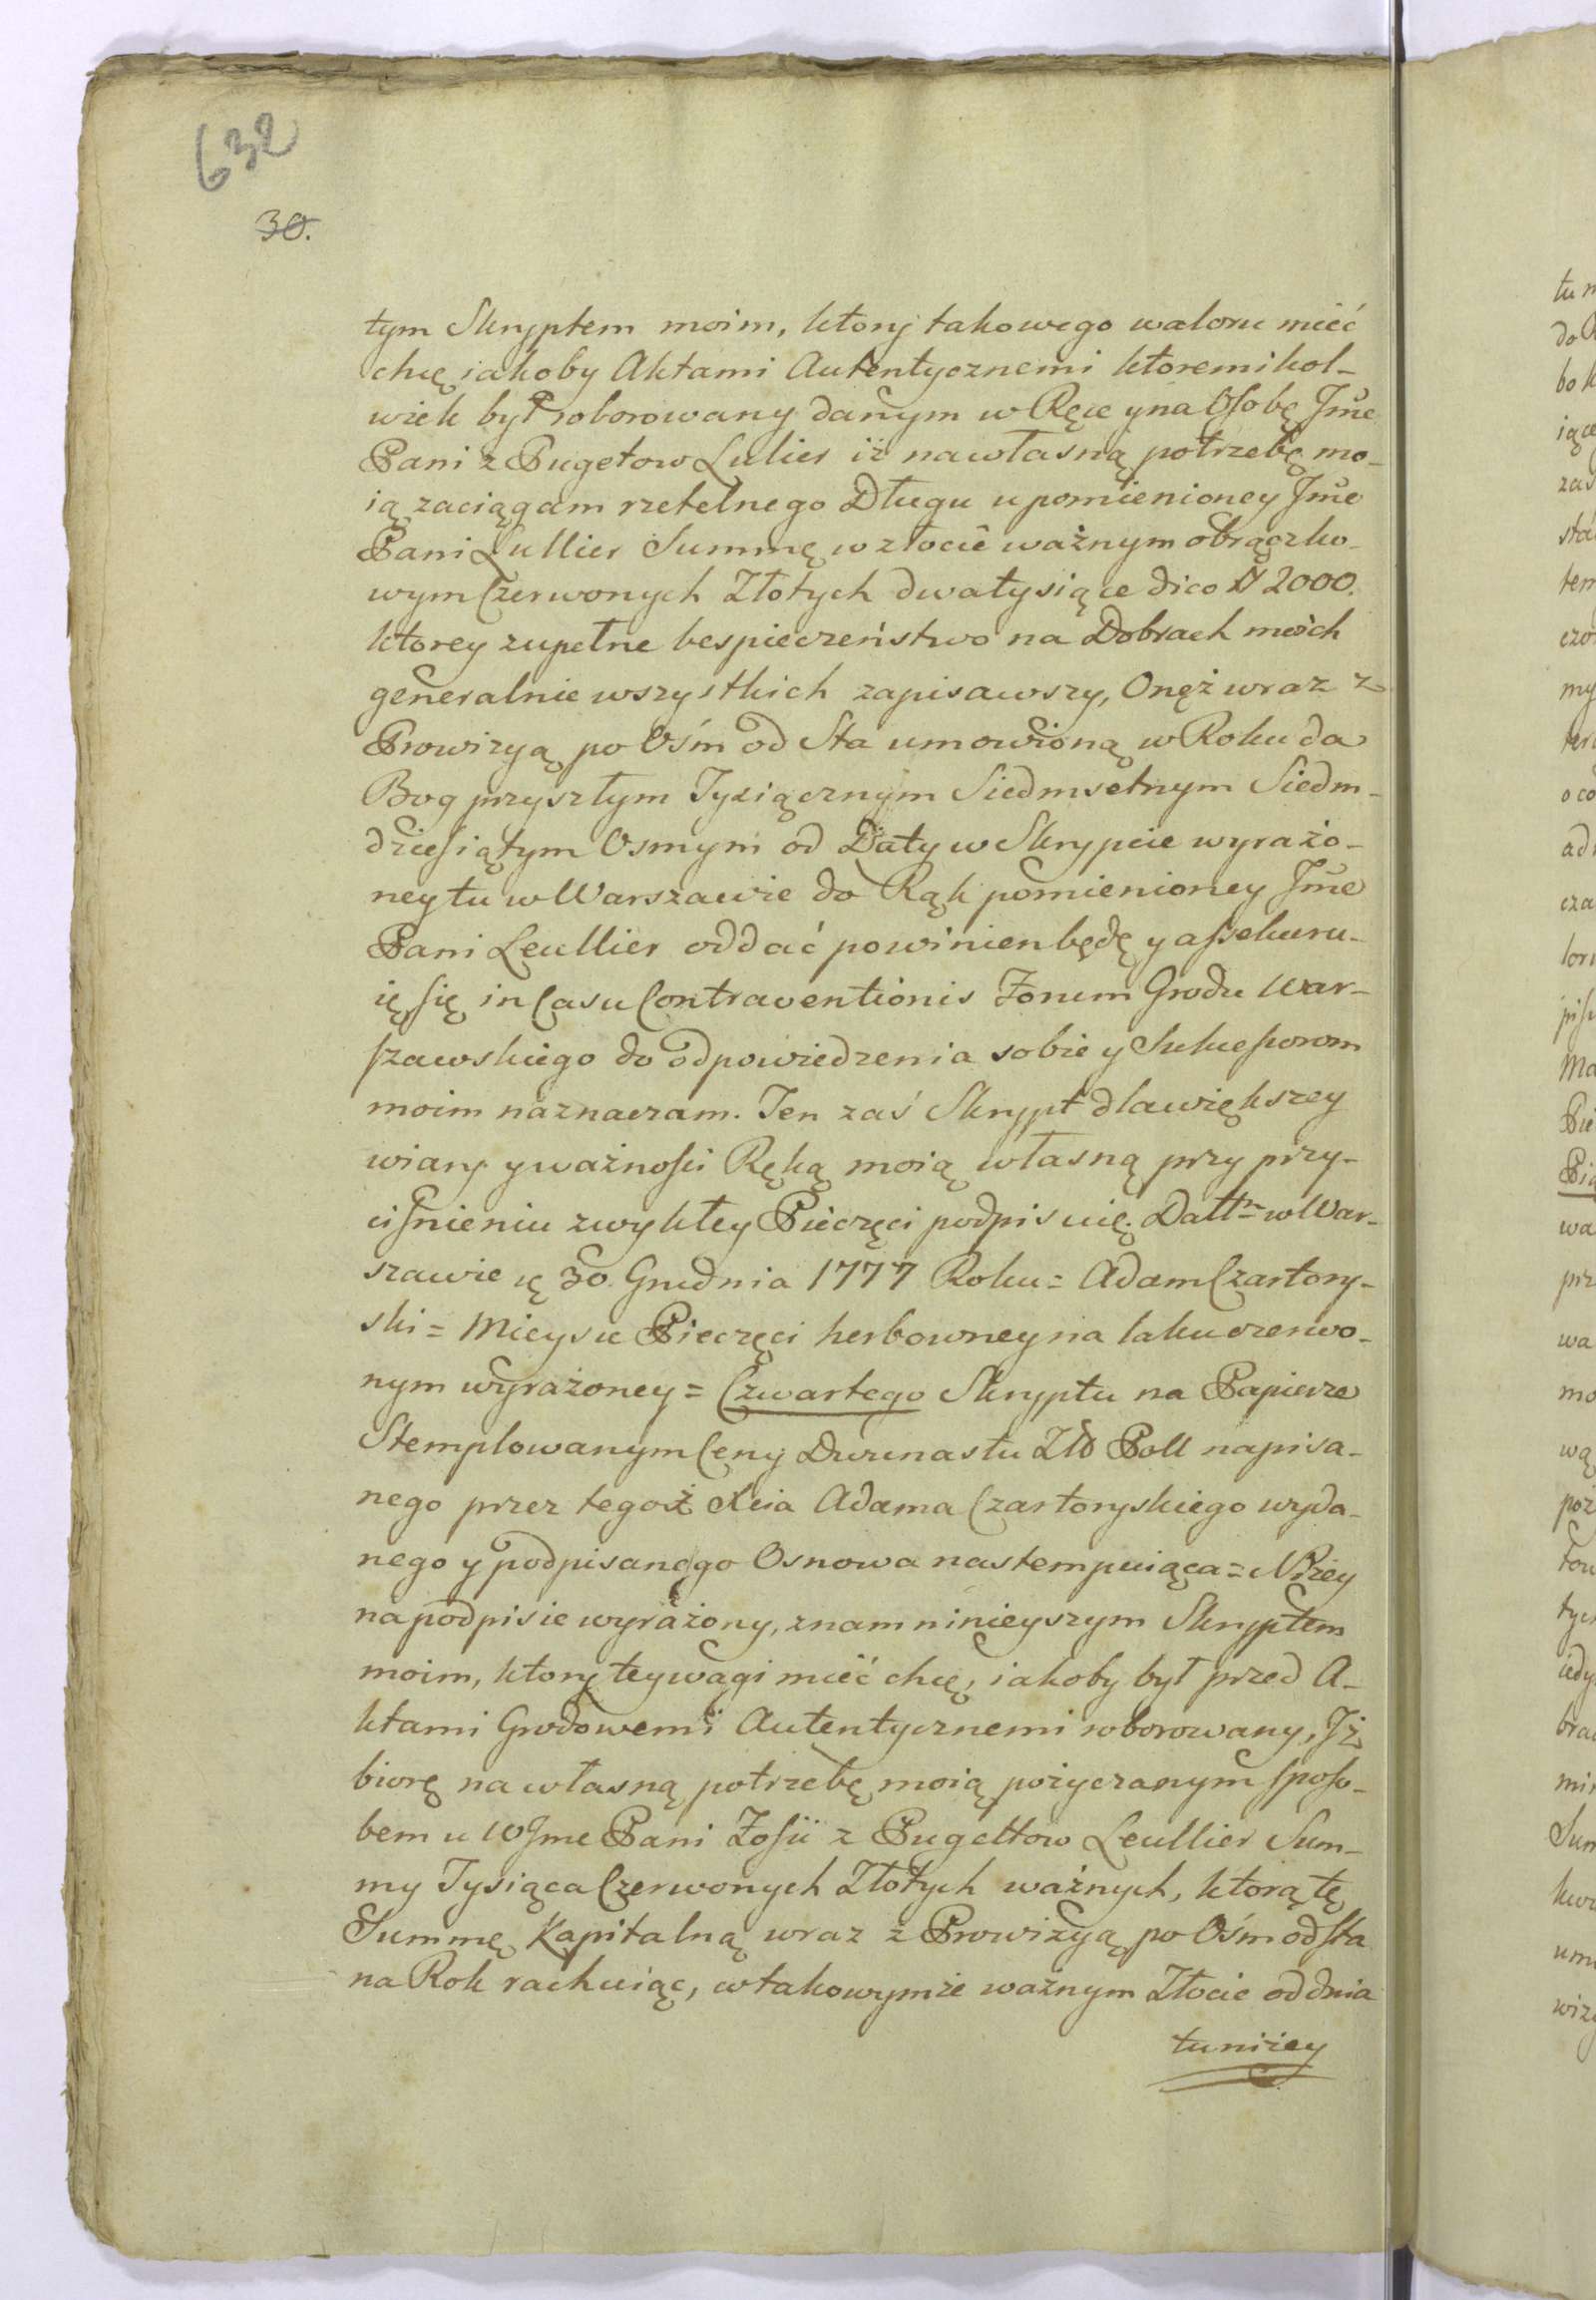 632
30.
tym Skryptem moim, ktory takowego waloru mieć
chcę iakoby Aktami Autentycznemi ktoremikol-
wiek był roborowany danym w Ręce y na Osobę Jme
Pani z Pugetow Lulier iż na własną potrzebę mo-
ią zaciągam rzetelnego Długu u pomienioney Jme
Pani Lullier Summę w złocie ważnym obrączko-
wym Czerwonych Złotych dwa tysiące dico # 2000.
ktorey zupełne bespieczeństwo na Dobrach moich
generalnie wszystkich zapisawszy, Onęż wraz z
Prowizyą po Ośm od Sta umowioną w Roku da
Bog przyszłym Tysiącznym Siedmsetnym Siedm-
dziesiątym Osmym od Daty w Skrypcie wyrażo-
ney tu w Warszawie do Rąk pomienioney Jme
Pani Leullier oddać powinien będę y assekuru-
ię się in Casu Contraventionis Forum Grodu War-
szawskiego do odpowiedzenia sobie y Sukcessorom
moim náznaczam. Ten zaś Skrypt dla większey
wiary y ważnosci Ręką moią własną przy przy-
cisnieniu zwykłey Pieczęci podpisuię. Dattm w War-
szawie ę 30. Grudnia 1777 Roku = Adam Czartory-
ski = Mieysce Pieczęci herbowney na laku czerwo-
nym wyrażoney = Czwartego Skryptu na Papierze
Stemplowanym Ceny Dwunastu Zło Poll napisa-
nego przez tegoż Xcia Adama Czartoryskiego wyda-
nego y podpisanego Osnowa nastempuiąca = Niżey
na podpisie wyrażony, znam ninieyszym Skryptem
moim, ktory tey wagi mieć chcę, iakoby był przed A-
ktami Grodowemi Autentycznemi roborowany, Iż
biorę na własną potrzebę moią pożyczanym sposo-
bem u WJme Pani Zofii z Pugettow Leullier Sum-
my Tysiąca Czerwonych Złotych ważnych, ktorą tę
Summę Kapitalną wraz z Prowizyą po Ośm od sta
na Rok rachuiąc, w takowymże ważnym Złocie od dnia
tu niżey